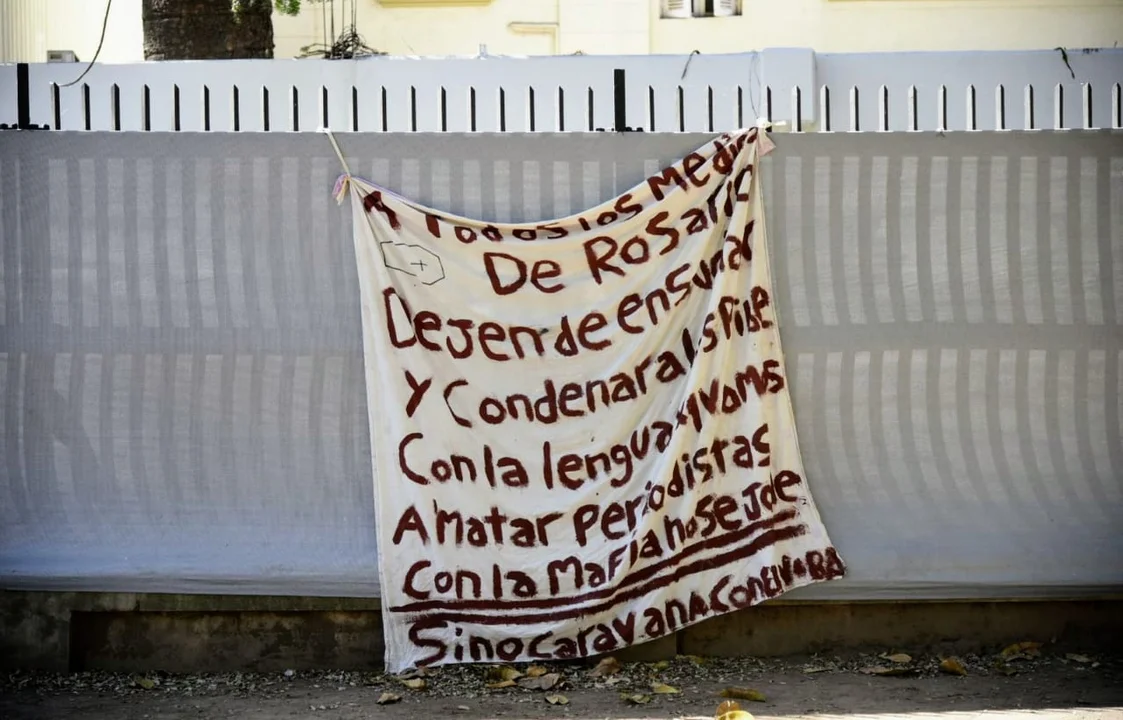 A Todos los Medios
De Rosario
Dejen de ensuciar
y Condenar a los Pibe
Con la lengua xq vamos
A matar Periodistas
Con la Mafia no se Jode
Sino Caravana Con